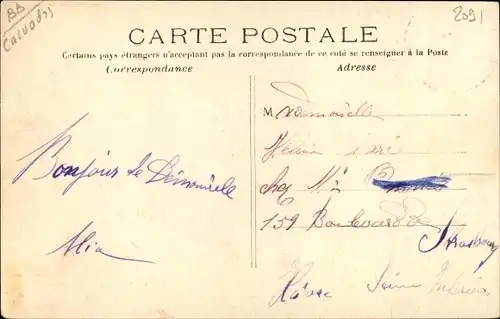 BB
Calvados
2091
CARTE POSTALE
Certains pays étrangers n'acceptant pas la correspondance de ce coté se renseigner à la Poste
Correspondance
Adresse
Bonjour de Démouville
Mademoiselle
chez Mr
159 Boulevard de
Strasbourg
Hâvre Seine Inférieure